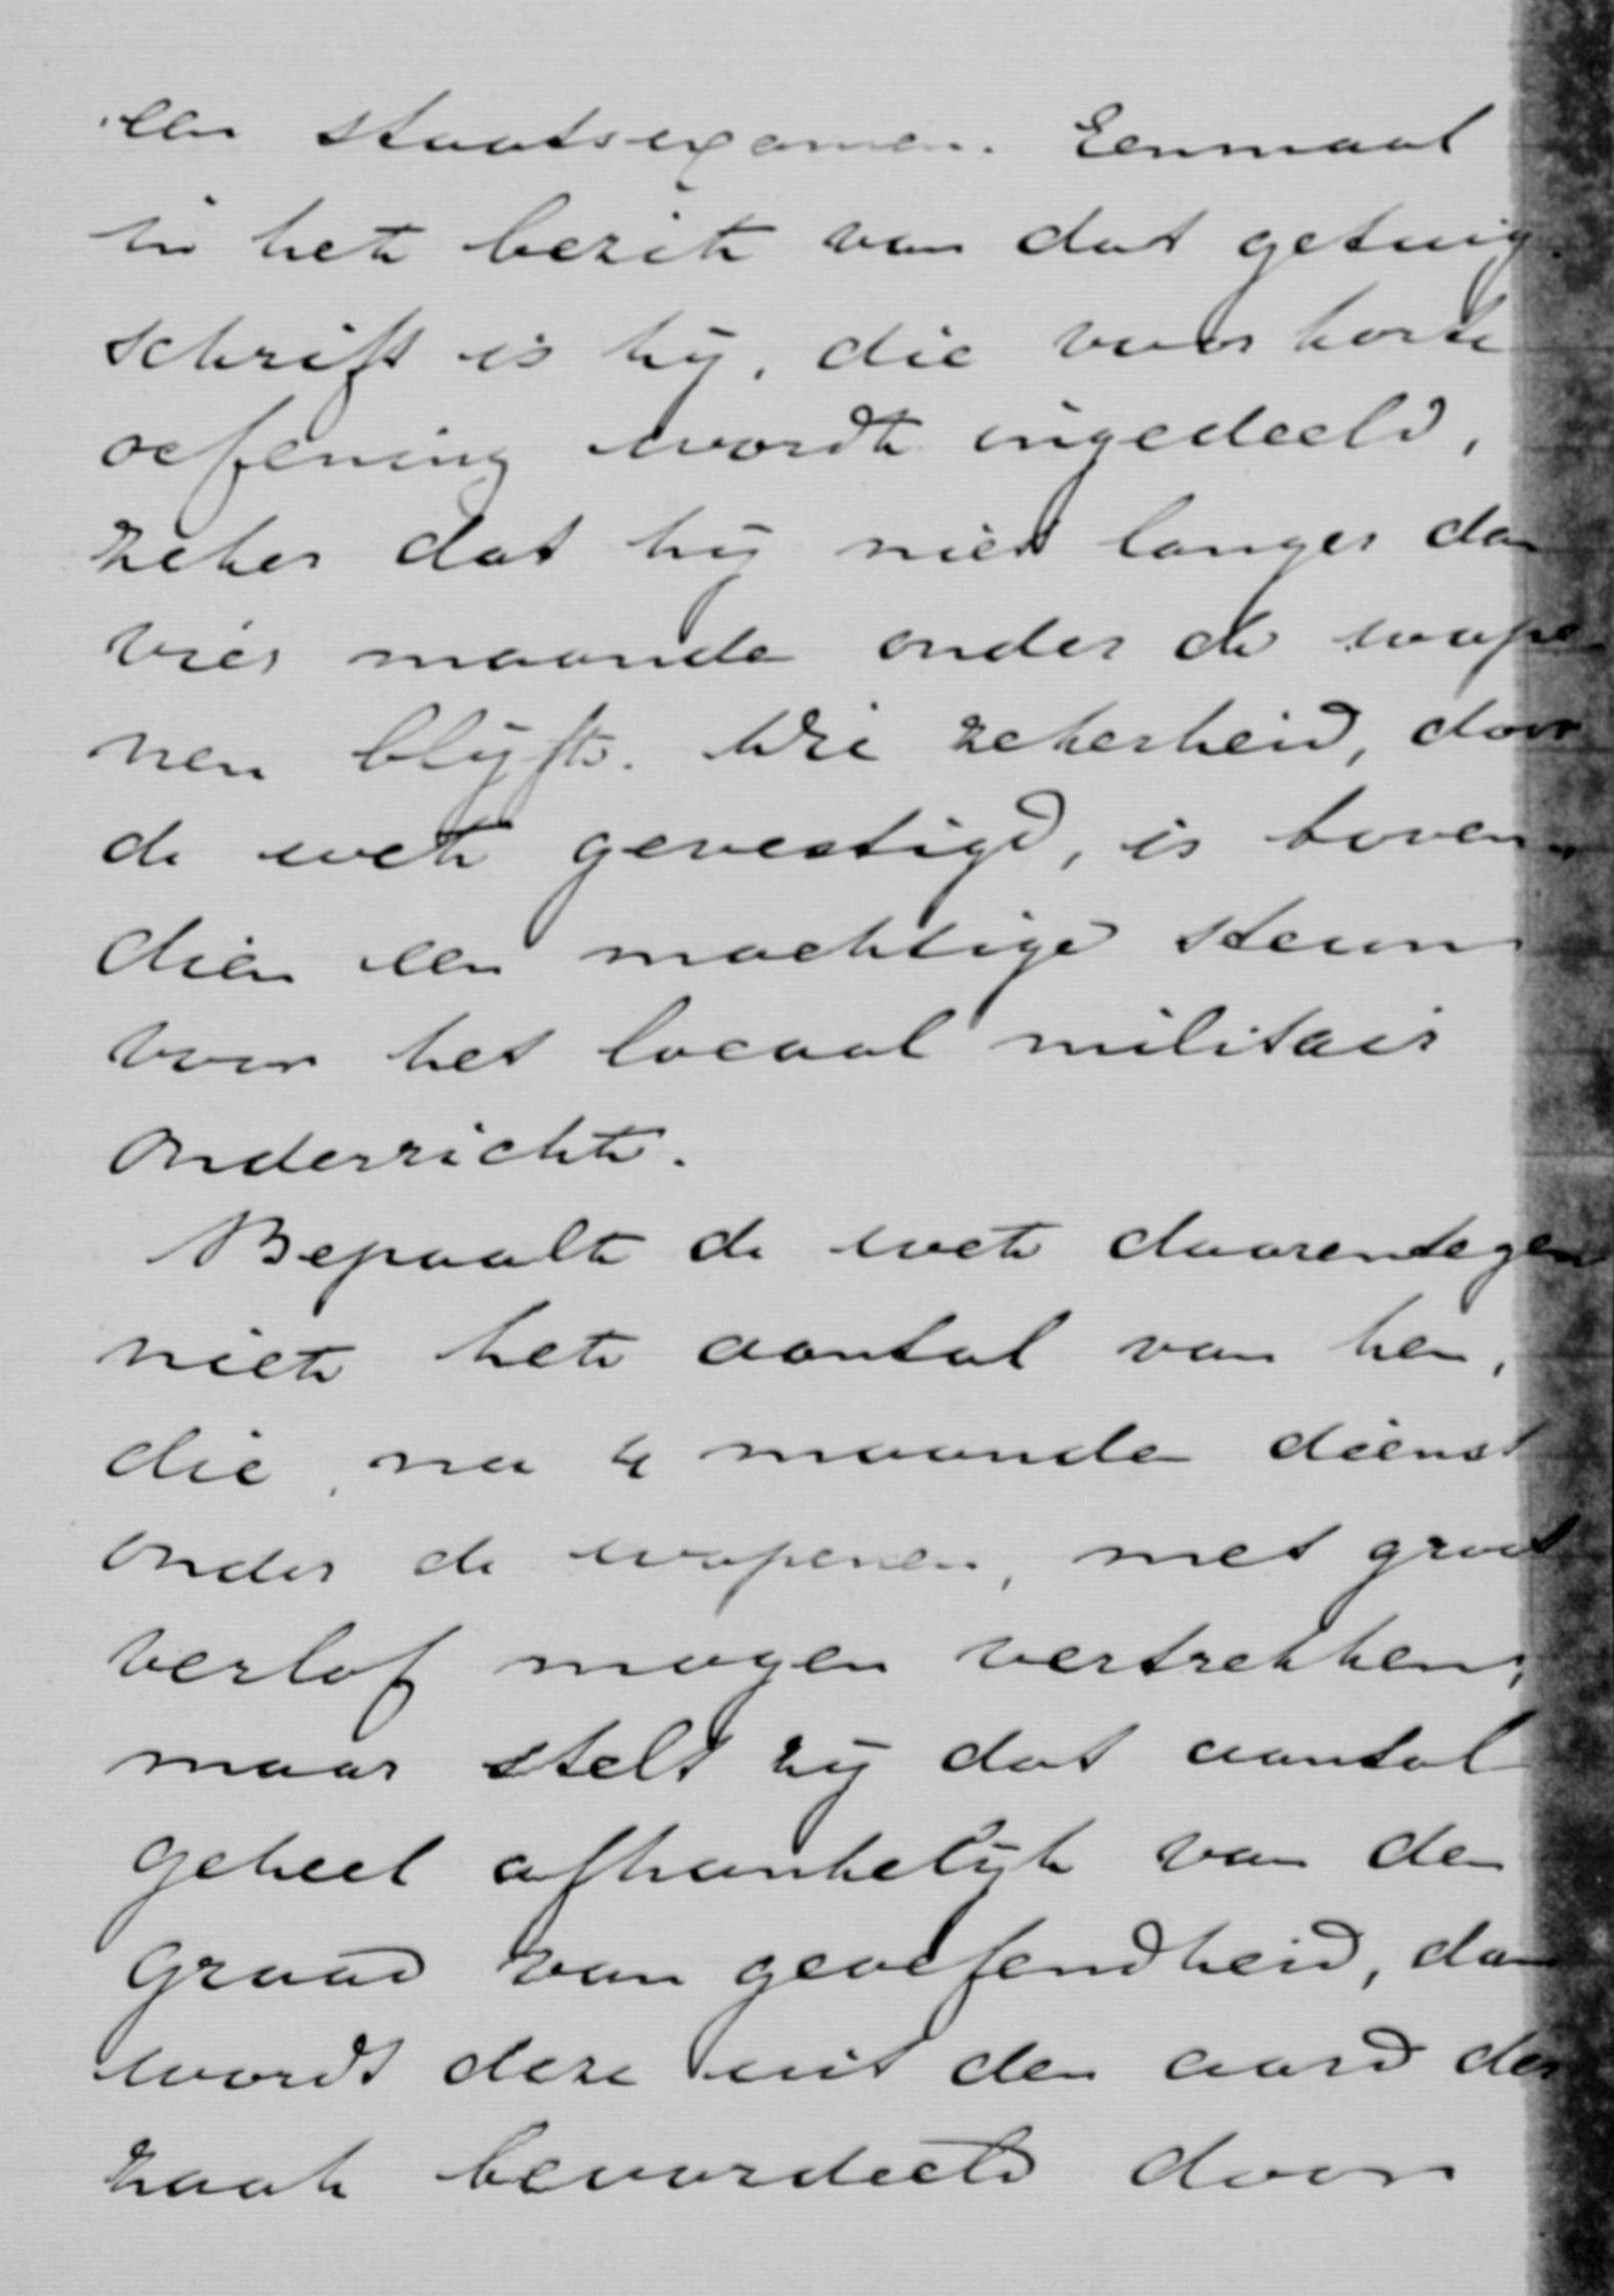 een staatsexamen. Eenmaal
in het bezit van dat getuig
schrift is hij, die voor korte
oefening wordt ingedeeld,
zeker dat hij niet langer dan
vier maanden onder de wape
nen blijft. Die zekerheid, door
de wet gevestigd, is boven-
dien een machtige steun
voor het locaal militair
onderricht.
Bepaalt de wet daarentegen
niet het aantal van hen,
die, na 4 maanden dienst
onder de wapenen, met groot
verlof mogen vertrekken,
maar stelt zij dat aantal
geheel afhankelijk van den
graad van geoefendheid, dan
wordt deze uit den aard der
zaak beoordeeld door